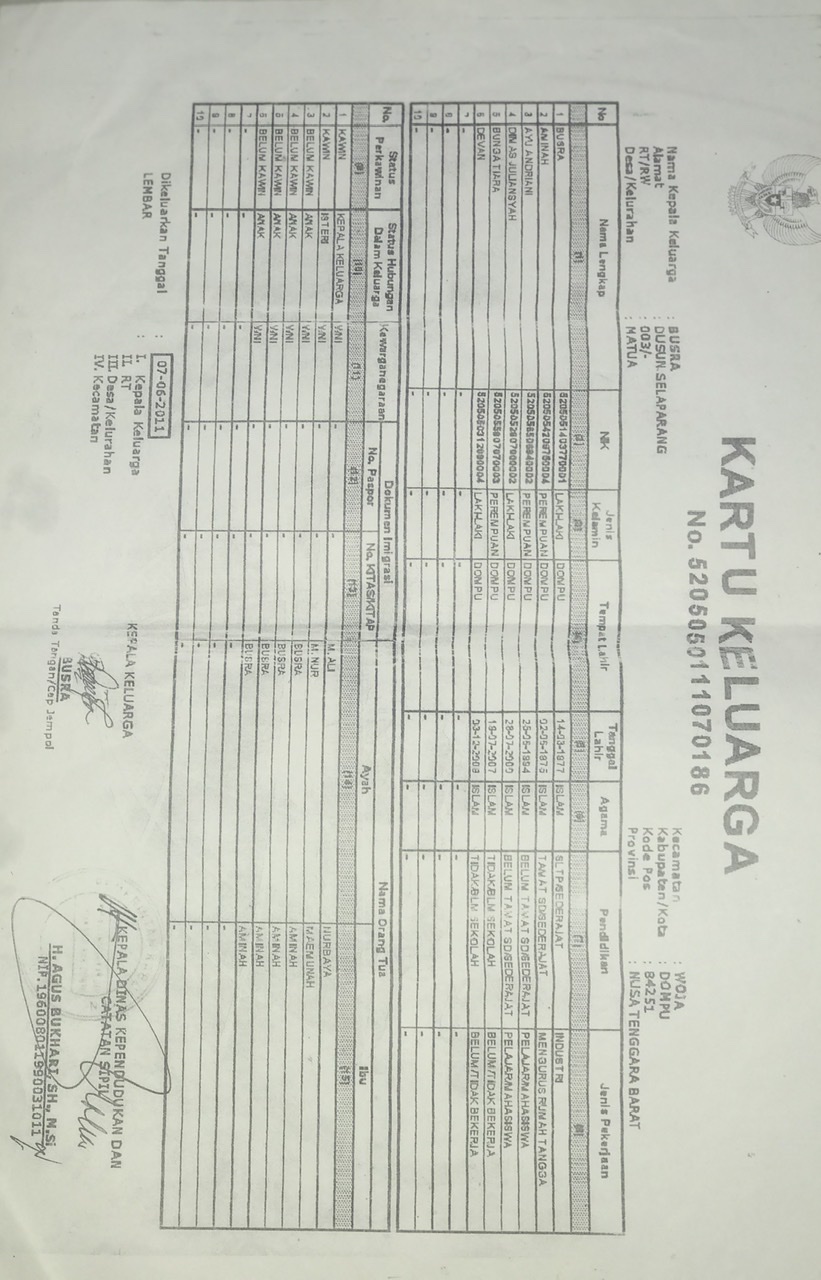 KARTU KELUARGA
No. 5205050111070186
Nama Kepala Keluarga : BUSRA
Alamat : DUSUN SELAPARANG
RT/RW : 003/-
Desa/Kelurahan : MATUA
Kecamatan : WOJA
Kabupaten/Kota : DOMPU
Kode Pos : 84251
Provinsi : NUSA TENGGARA BARAT
No Nama Lengkap NIK Jenis Kelamin Tempat Lahir Tanggal Lahir Agama Pendidikan Jenis Pekerjaan
(1) (2) (3) (4) (5) (6) (7) (8)
1 BUSRA 5205051403770001 LAKI-LAKI DOMPU 14-03-1977 ISLAM SLTP/SEDERAJAT INDUSTRI
2 AMINAH PEREMPUAN DOMPU ISLAM TAMAT SD/SEDERAJAT MENGURUS RUMAH TANGGA
3 AYU ANDRIANI PEREMPUAN DOMPU ISLAM BELUM TAMAT SD/SEDERAJAT PELAJAR/MAHASISWA
4 DIMAS JULIANSYAH LAKI-LAKI DOMPU ISLAM BELUM TAMAT SD/SEDERAJAT PELAJAR/MAHASISWA
5 BUNGA TIARA PEREMPUAN DOMPU 19-07-2007 ISLAM TIDAK/BLM SEKOLAH BELUM/TIDAK BEKERJA
6 DEVAN LAKI-LAKI DOMPU ISLAM TIDAK/BLM SEKOLAH BELUM/TIDAK BEKERJA
7 - - - - - - - -
8 - - - - - - - -
9 - - - - - - - -
10 - - - - - - - -
No. Status Perkawinan Status Hubungan Dalam Keluarga Kewarganegaraan Dokumen Imigrasi Nama Orang Tua
No. Paspor No. KITAS/KITAP Ayah Ibu
(9) (10) (11) (12) (13) (14) (15)
1 KAWIN KEPALA KELUARGA WNI - - M. ALI NURBAYA
2 KAWIN ISTERI WNI - - M. NUR MAEMUNAH
3 BELUM KAWIN ANAK WNI - - BUSRA AMINAH
4 BELUM KAWIN ANAK WNI - - BUSRA AMINAH
5 BELUM KAWIN ANAK WNI - - BUSRA AMINAH
6 BELUM KAWIN ANAK WNI - - BUSRA AMINAH
7 - - - - - - -
8 - - - - - - -
9 - - - - - - -
10 - - - - - - -
Dikeluarkan Tanggal : 07-06-2011
LEMBAR : I. Kepala Keluarga
II. RT
III. Desa/Kelurahan
IV. Kecamatan
KEPALA KELUARGA
BUSRA
Tanda Tangan/Cap Jempol
KEPALA DINAS KEPENDUDUKAN DAN
CATATAN SIPIL
H. AGUS BUKHARI, SH., M.Si
NIP. 196008011990031011